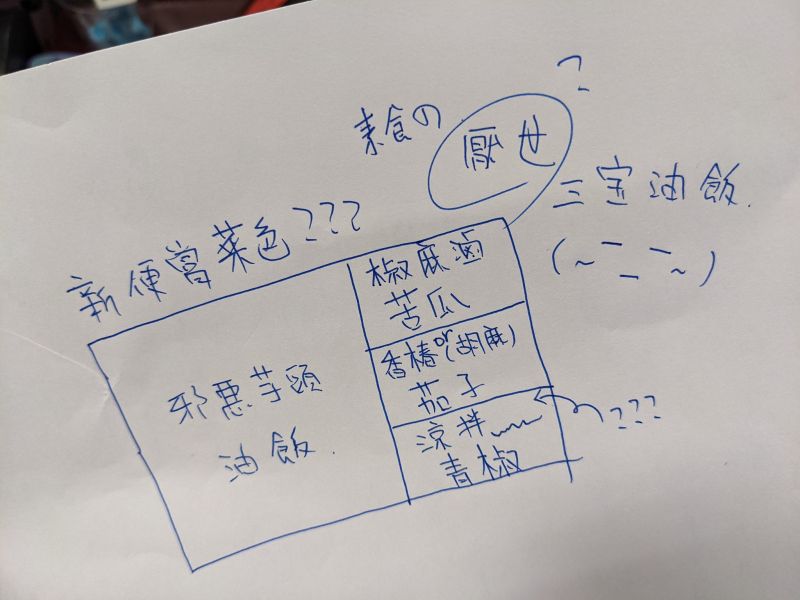 素食の厭世?
三宝油飯.
(~ニニ~)
新便當菜色???
椒麻滷
苦瓜
香椿or(胡麻)
茄子
涼拌
青椒
???
邪惡芋頭
油飯.